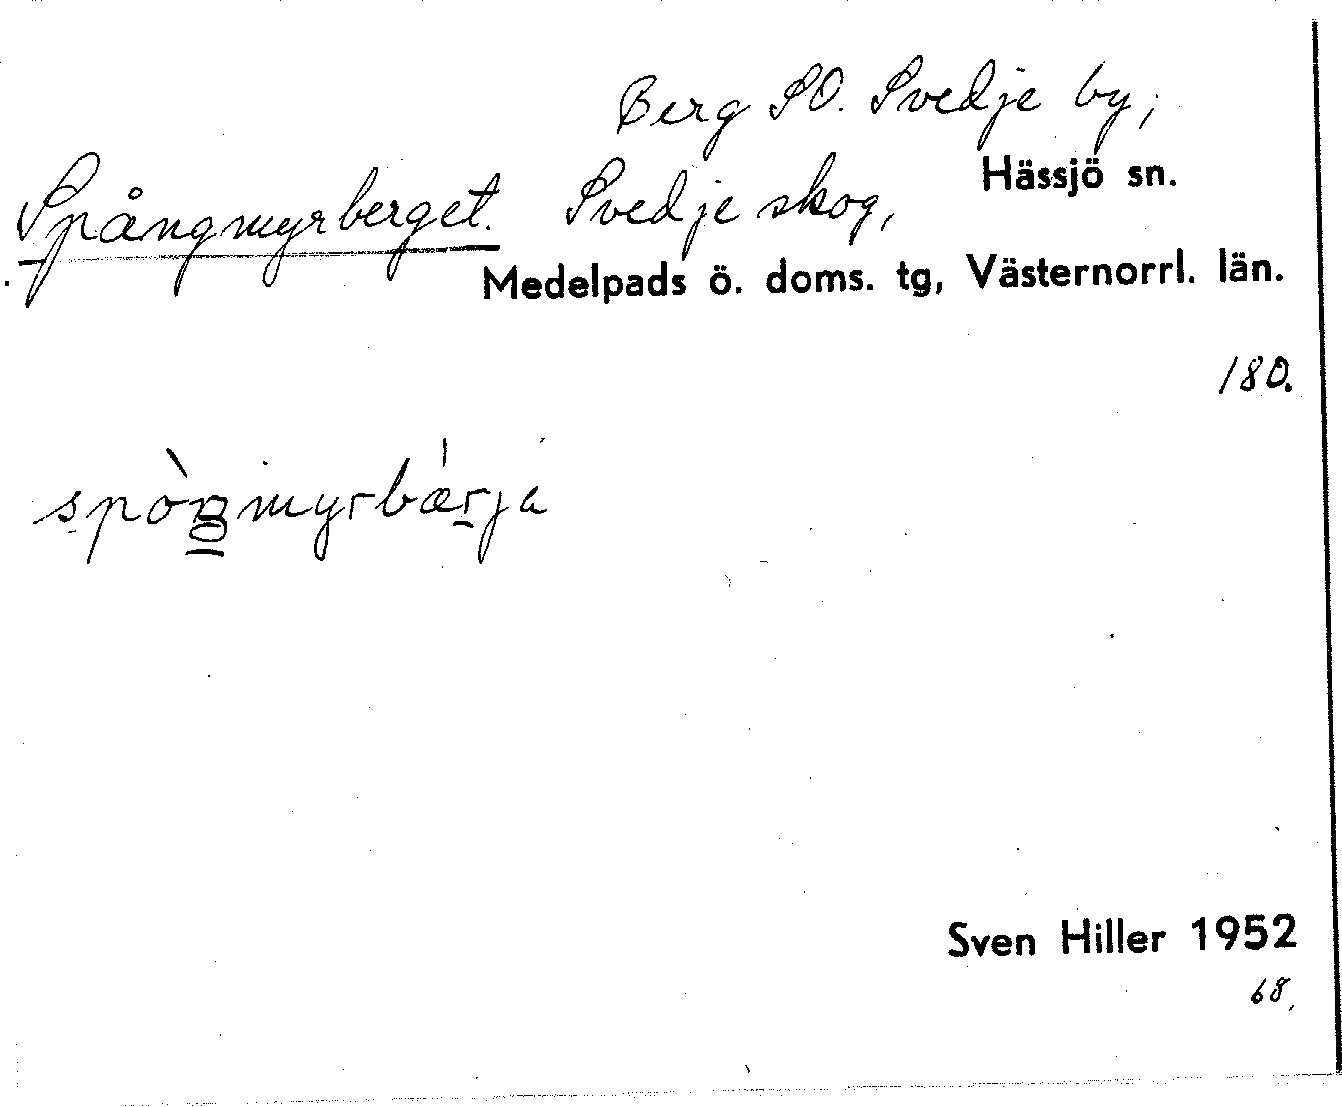 Berg SO. Svedje by,
Spångmyrberget. Svedje skog, Hässjö sn.
Medelpads ö. doms. tg, Västernorrl. län.
180.
Sven Hiller 1952
68.